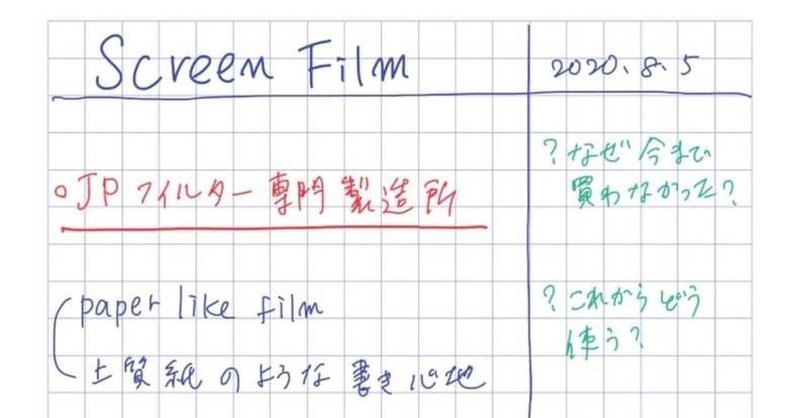 Screen Film
2020.8.5
○JPフィルター専門製造所
paper like film
上質紙のような書き心地
?なぜ今まで
買わなかった?
?これからどう
使う?